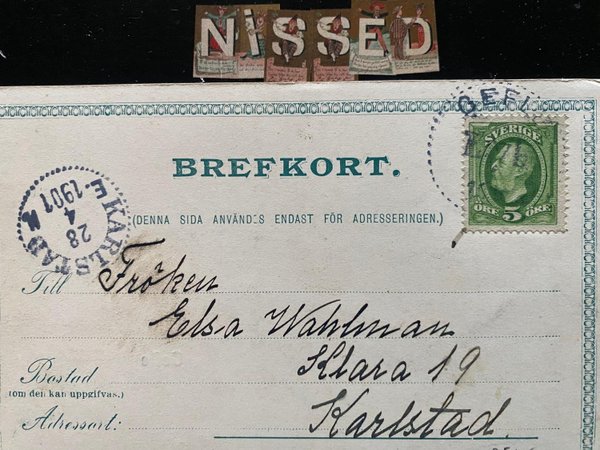 NiSSED
GEFL
SVERIGE
BREFKORT.
ÖRE 5 ÖRE
(DENNA SIDA ANVÄNDES ENDAST FÖR ADRESSERINGEN.)
KARLSTAD
28
4
1901
E
Till Fröken
Elsa Wahlman
Klara 19
Bostad
(om den kan uppgifvas.)
Karlstad.
Adressort: